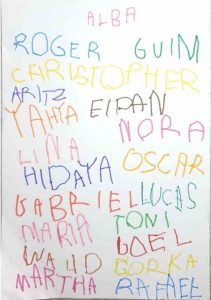 ALBA
ROGER GUIM
CARISTOPHER
ARITZ
YAHYA EIFAN
NORA
LINA
OSCAR
HIDAYA
GABRIEL LUCAS
MARIA TONI
JOEL
WALID GORKA
MARTHA RAFAEL